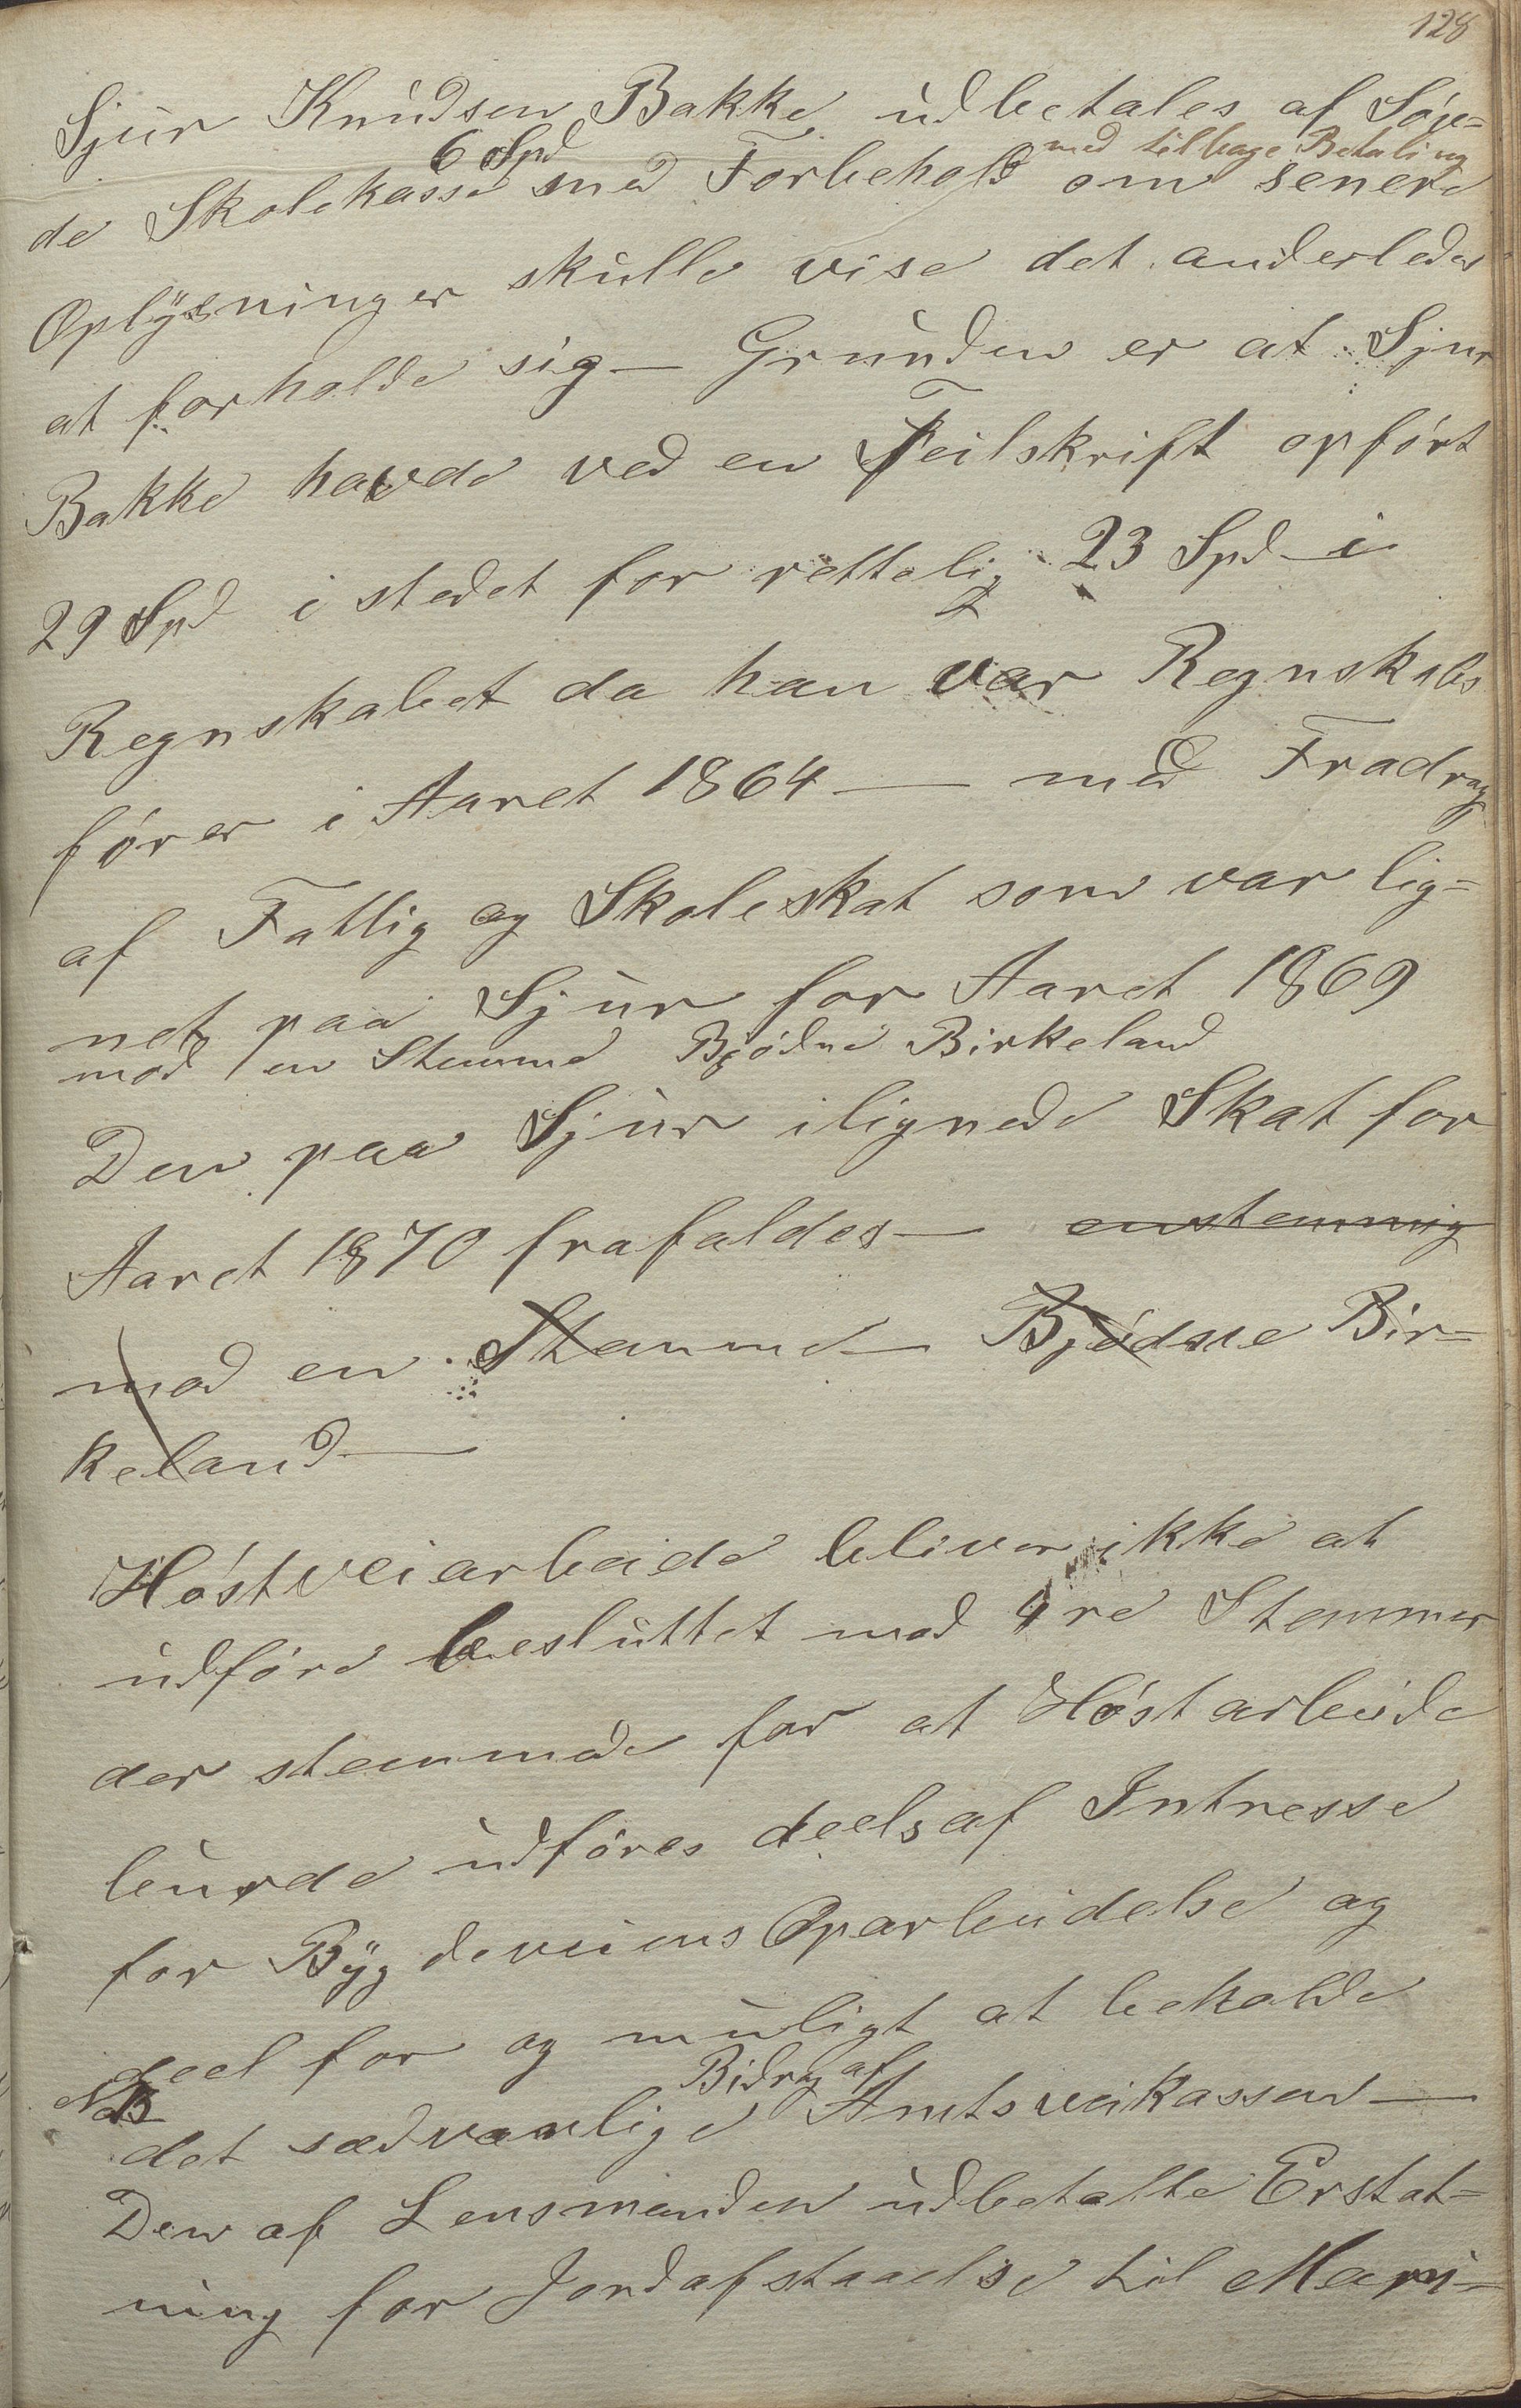 128
Sjur Knudsen Bakke udbetales af Søve-
6 Spd med tilbage Betaling
de Skolekasse med Forbehold om senere
Oplysninger skulle vise det anderledes
at forholde sig — Grunden er at Sjur
Bakke havde ved en Feilskrift opført
29 Spd i stedet for rettelig 23 Spd i
Regnskabet da han var Regnskabs
fører i Aaret 1864 — med Fradrag
af Fattig og Skoleskat som var lig-
net paa Sjur for Aaret 1869
mod en Stemme Bjødne Birkeland
Den paa Sjur ilignede Skat for
Aaret 1870 frafaldes — enstemmig
mod en Stemme — Bjødne Bir-
keland —
Høstveiarbeide bliver ikke at
udføre besluttet mod 4re Stemmer
der stemmede for at Høstarbeide
burde udføres deels af Intresse
for Bygdeveiens Oparbeidelse og
deel for og muligt at beholde
NB Bidrag af
det sædvanlige Amtsveikassen —
Den af Lensmanden udbetalte Erstat-
ning for Jordafstaaelse til